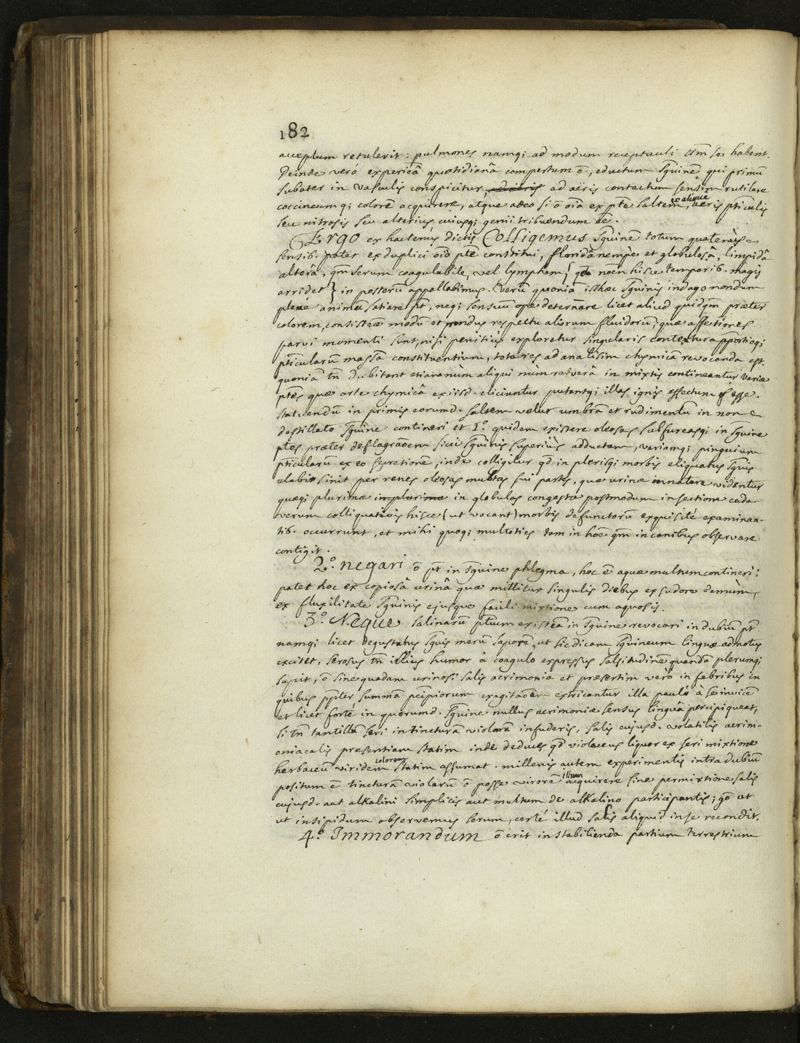 182
acceptum retulerit: pulmones namqi ad modum receptaculi habent.
Deinde vero experiēā quotidianā compertum ē, eductum sguinē qui primū
subater in vasculis conspicitur ad aëris contactum sensim rutilare
coccineumqi colorē acquirere, atque adeo si ō oīa ex pte saltem ex aliqua, aëris pticulis
seu nitrosis seu alterius cuiusqi genii tribuendum ēē.
Ergo ex hactenus dictis Colligemus sguinē totum quatenūs
sensib. patet ex duplici oīō pte constitui, floridā nempe et globulosā, limpidā
alterā, qm serum coagulabile, vel lympham (qđ noēn hisce temporib. magis
arridet) in posterū appellabimus. Verū quoniā isthæc sguinis indago nondum
plene animū satiare pt, neqi sensuū ope determāre licet aliud quidqm præter
colorem, consistæ modū et pondus respectu aliorum fluidorū; quæ affectiones
parvi momenti sunt, nisi penitius exploretur singularis contextura
pticularū massā constituentium, tota res ad analisim chymicā revocanda est.
quoniā tn dubitant etiamnùm aliqui nùm reverā in mixtis contineantur variæ
ptes quæ arte chymicā ex iisd. eliciuntur putantqi illas ignis effectum esse.
statuendū in primis eorumd. saltem velut umbrā et rudimentū in non
destillato sguine contineri et 1.º quidem existere oleosas sulfureasqi in sguine
ptes præter deflagraōem sicci sguinis superiùs adductam, variamqi pinguium
pticularū ex eo secretionē, inde colligitur qđ in plerisqi morbis eliquatus sguis
elabi sinit per renes oleosas multas sui partes, quæ urinæ innatare videntur
quæqi plurimæ in globulos congestæ postmodum in sectione cada-
verum colliquativis hisce (ut vocant) morbis defunctorū exquisitè examinan-
tib. occurrunt, et mihi quoqi multoties tam in hoē qm in canibus observare
contigit.
2.º negari ō pt in sguine phlegma, hoc ē aquæ multum contineri:
patet hoc ex copiosā urinā quæ mittitur singulis diebus ex sudore demùm,
ex fluxilitate sguinis ejusque facili mixtione cum aquosis.
3.º Neque salinarū ptium existēā in sguine revocari in dubiū pt
namqi licet degustatus sguis merū saporē, ut sic dicam sguineum linguæ admotus
excitet, serosus tn illius humor à coagulo expressus salsitudinē quandā plerumqi
sapit, ō sine quadam urinosi salis acrimonia et præsertim vero in febribus in
quibus ppter summā pcipiorum exagitaōēm extricantur illa paulò à se invicē
et licet fortè in quorumd. sguine nullus acrimoniæ sensus linguā percipiqueat,
si tn tantillū seri in tincturā violarū infuderis, salis cujusd. volatilis acrim-
oniacalis præsentiam statim inde deduces qđ violaceus liquor ex seri mixtione
herbaceū viridem colorem statim assumat. millenis autem experimentis intra dubiū
positum ē tincturā violarū ō posse virorē illum acquirere sine permixtione salis
cujusd. aut alkalini simplicis aut multum de alkalino participantis; qe et
ut insipidum observemus serum, certè illud salis aliquid in se recondit.
4.º Immorandum ō erit in stabilienda partium terrestrium